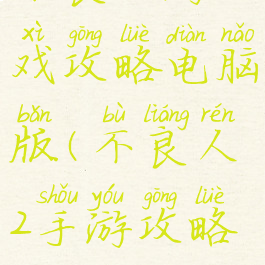 xì gōng lüè diàn nǎo
戏攻略电脑
bǎn bù liáng rén
版(不良人
shǒu yóu gōng lüè
2手游攻略